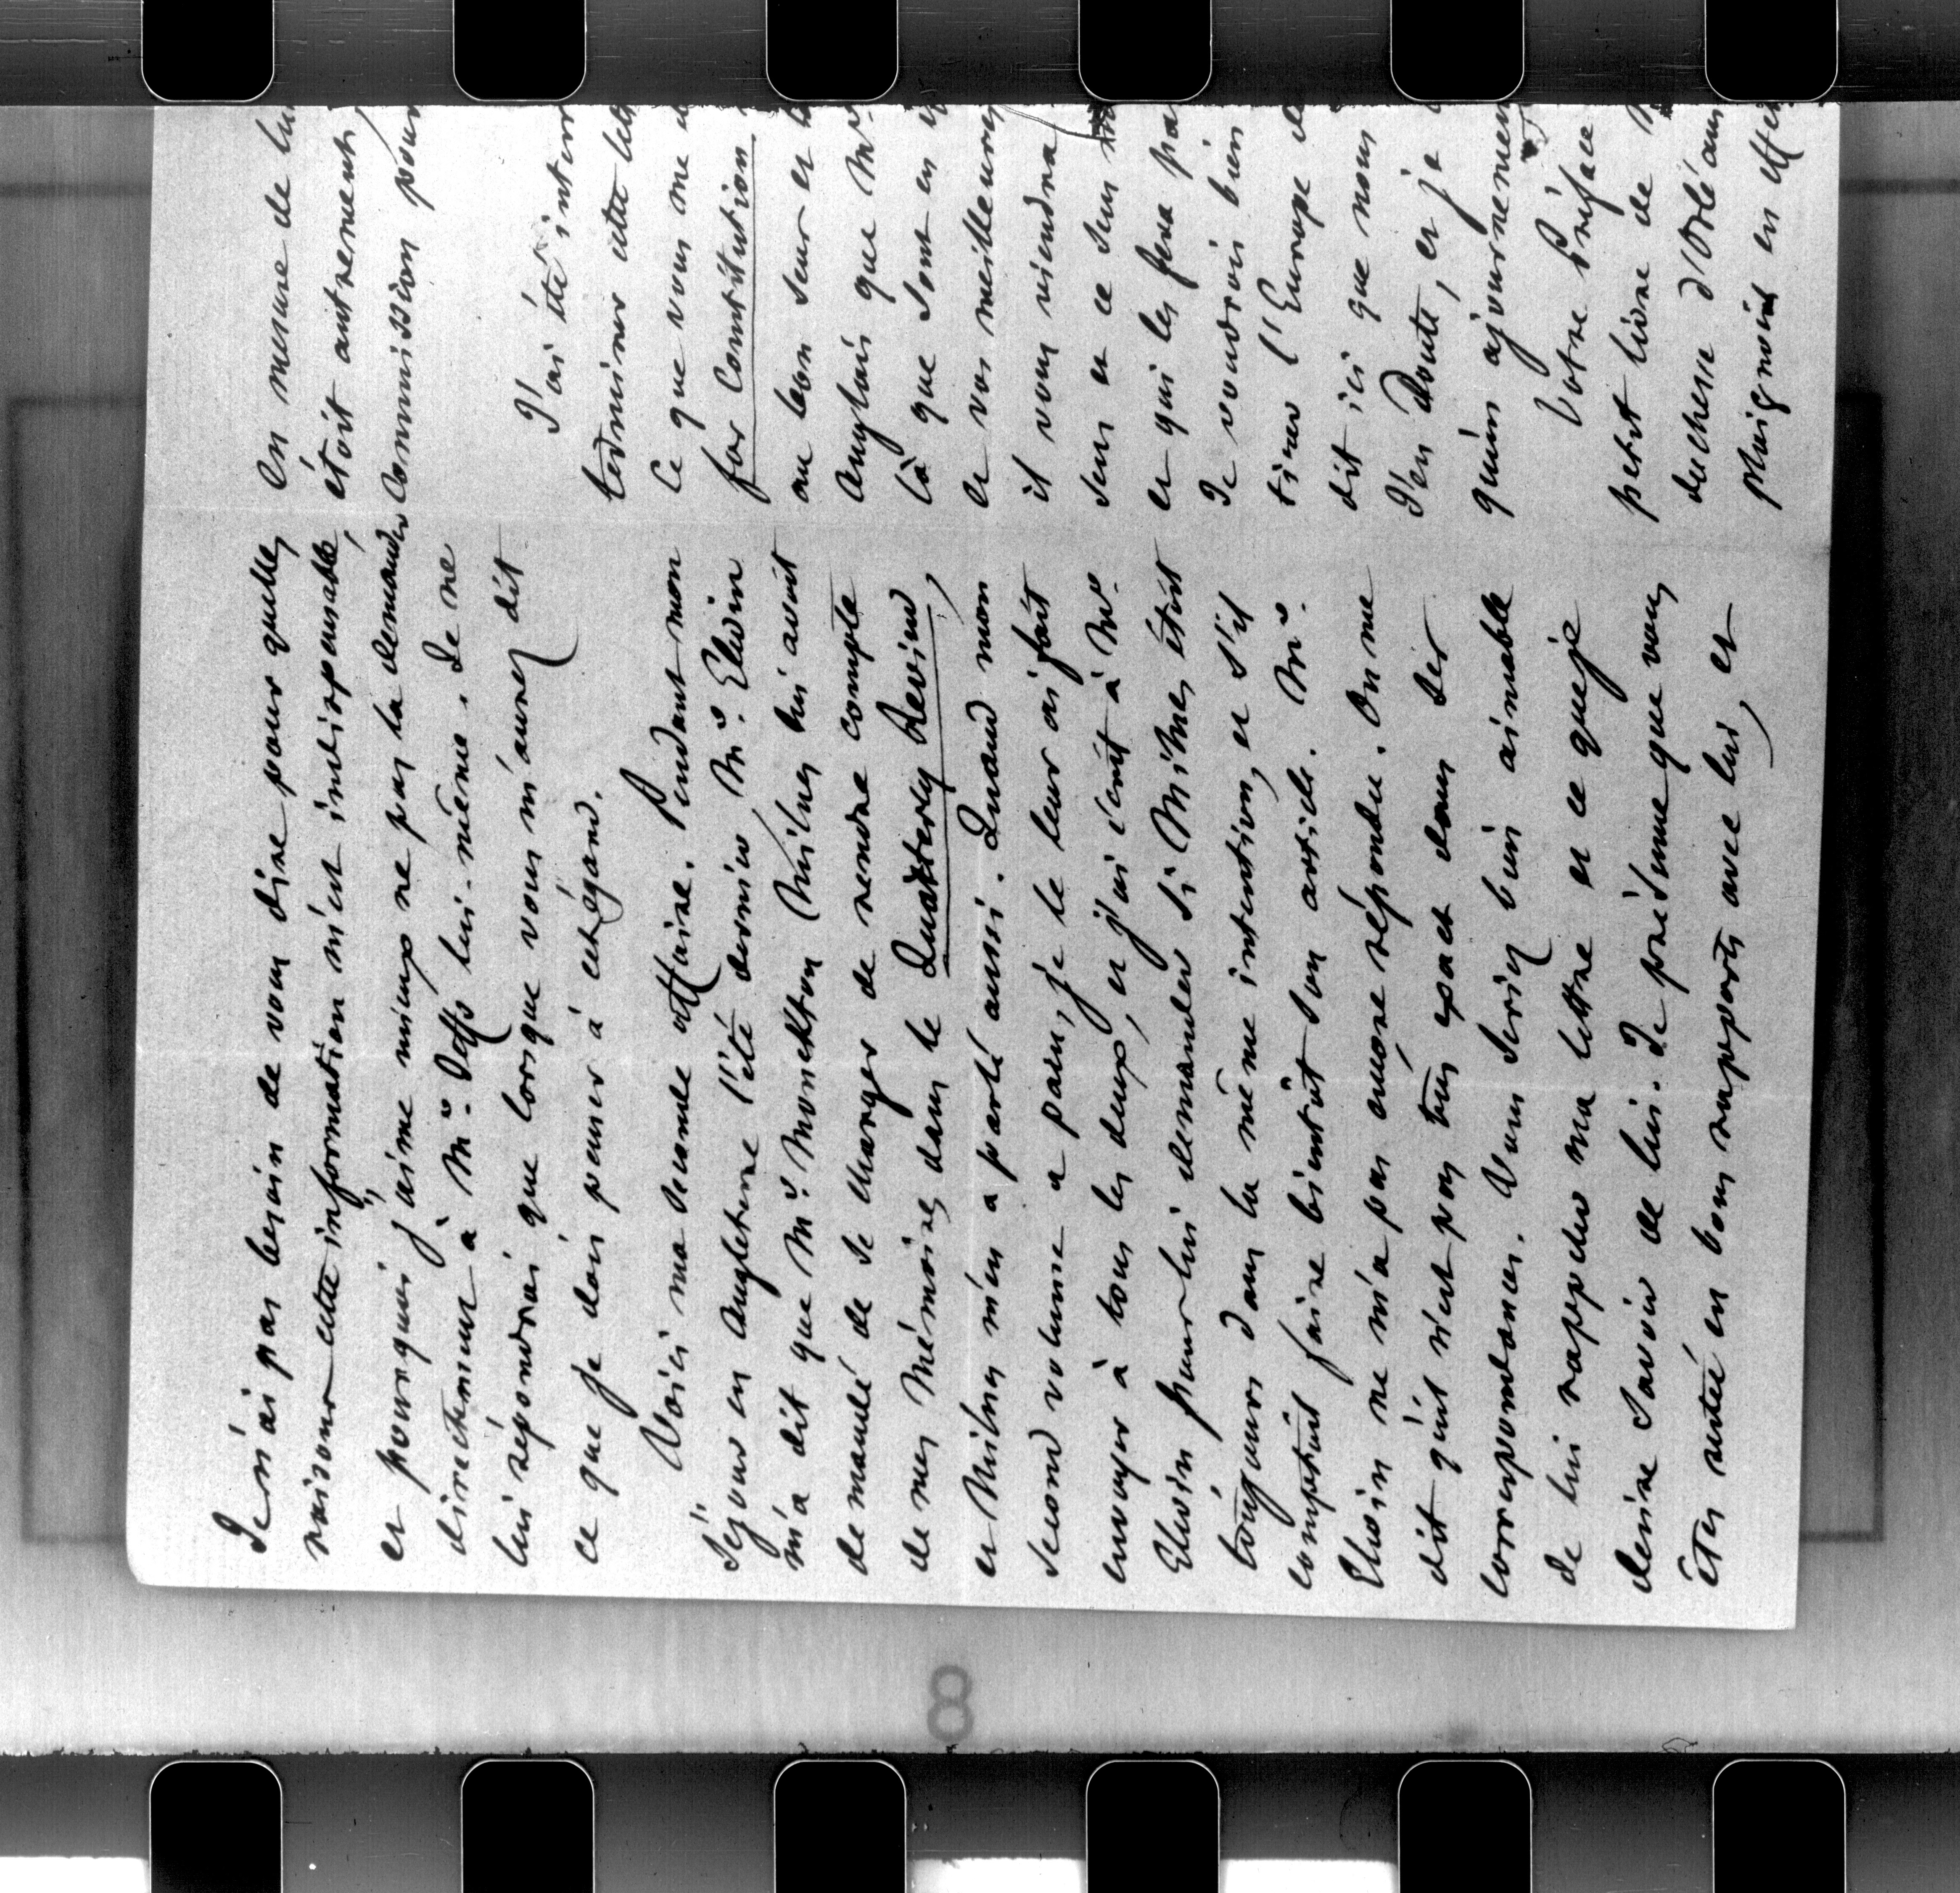 Je n'ai pas besoin de vous dire pour quelles
raisons cette information m'est indispensable,
et pourquoi j'aime mieux ne pas la demander
directement à Mr. lui-même. Je ne
lui répondrai que lorsque vous m'aurez dit
ce que je dois penser à cet égard.
Voici ma seconde affaire. Pendant mon
séjour en Angleterre l'été dernier, Mr. Elwin
m'a dit que Mr. Monckton Milnes lui avoit
demandé de se charger de rendre compte
de mes Mémoires dans le Quarterly Review,
et Milnes m'en a parlé aussi. Quand mon
second volume a paru, je le leur ai fait
envoyer à tous les deux, et j'ai écrit à Mr.
Elwin pour lui demander si Milnes étoit
toujours dans la même intention, et s'il
comptoit faire bientôt son article. Mr.
Elwin ne m'a pas encore répondu. On me
dit qu'il n'est pas très exact dans ses
correspondances. Vous seriez bien aimable
de lui rappeler ma lettre et ce que je
désire savoir de lui. Je présume que vous
êtes resté en bons rapports avec lui, et
en mesure de lui
étoit autrement,
commission pour
J'ai été
terminer cette
Ce que vous me
for Constitution
au bon sens et
anglais que Mr.
là que sont en
et vos meilleures
il vous viendra
sens et ce sera
et qui les fera
Je voudrois bien
tirer l'Europe
dit ici que nous
J'en doute, et je
qu'un ajournement
Votre Préface
petit livre de
duchesse d'Orléans
plaignoit en
8